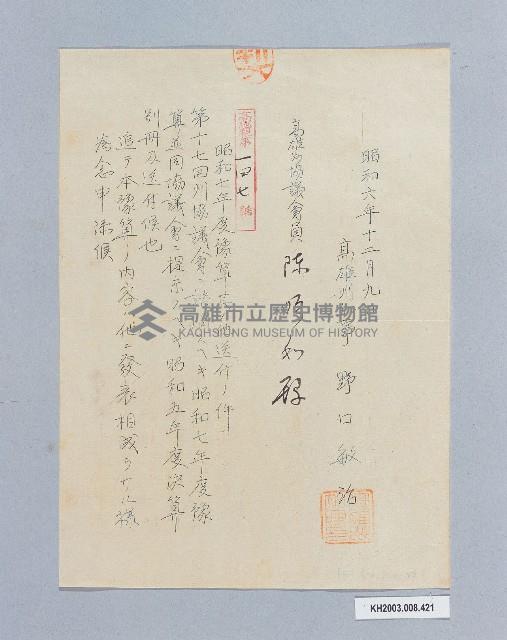 昭和六年十二月九
高雄州知事 野口敏治
高雄州協議會員 陳順和殿
一四七
昭和七年度豫算 送付ノ件
第十七回州協議會 昭和七年度豫
算並同協議會ニ提示スヘキ昭和五年度決算
別冊及送付候也
追テ本豫算ノ內容ハ他ニ發表相成ラサル樣
為念申添候
高雄市立歷史博物館
KAOHSIUNG MUSEUM OF HISTORY
KH2003.008.421